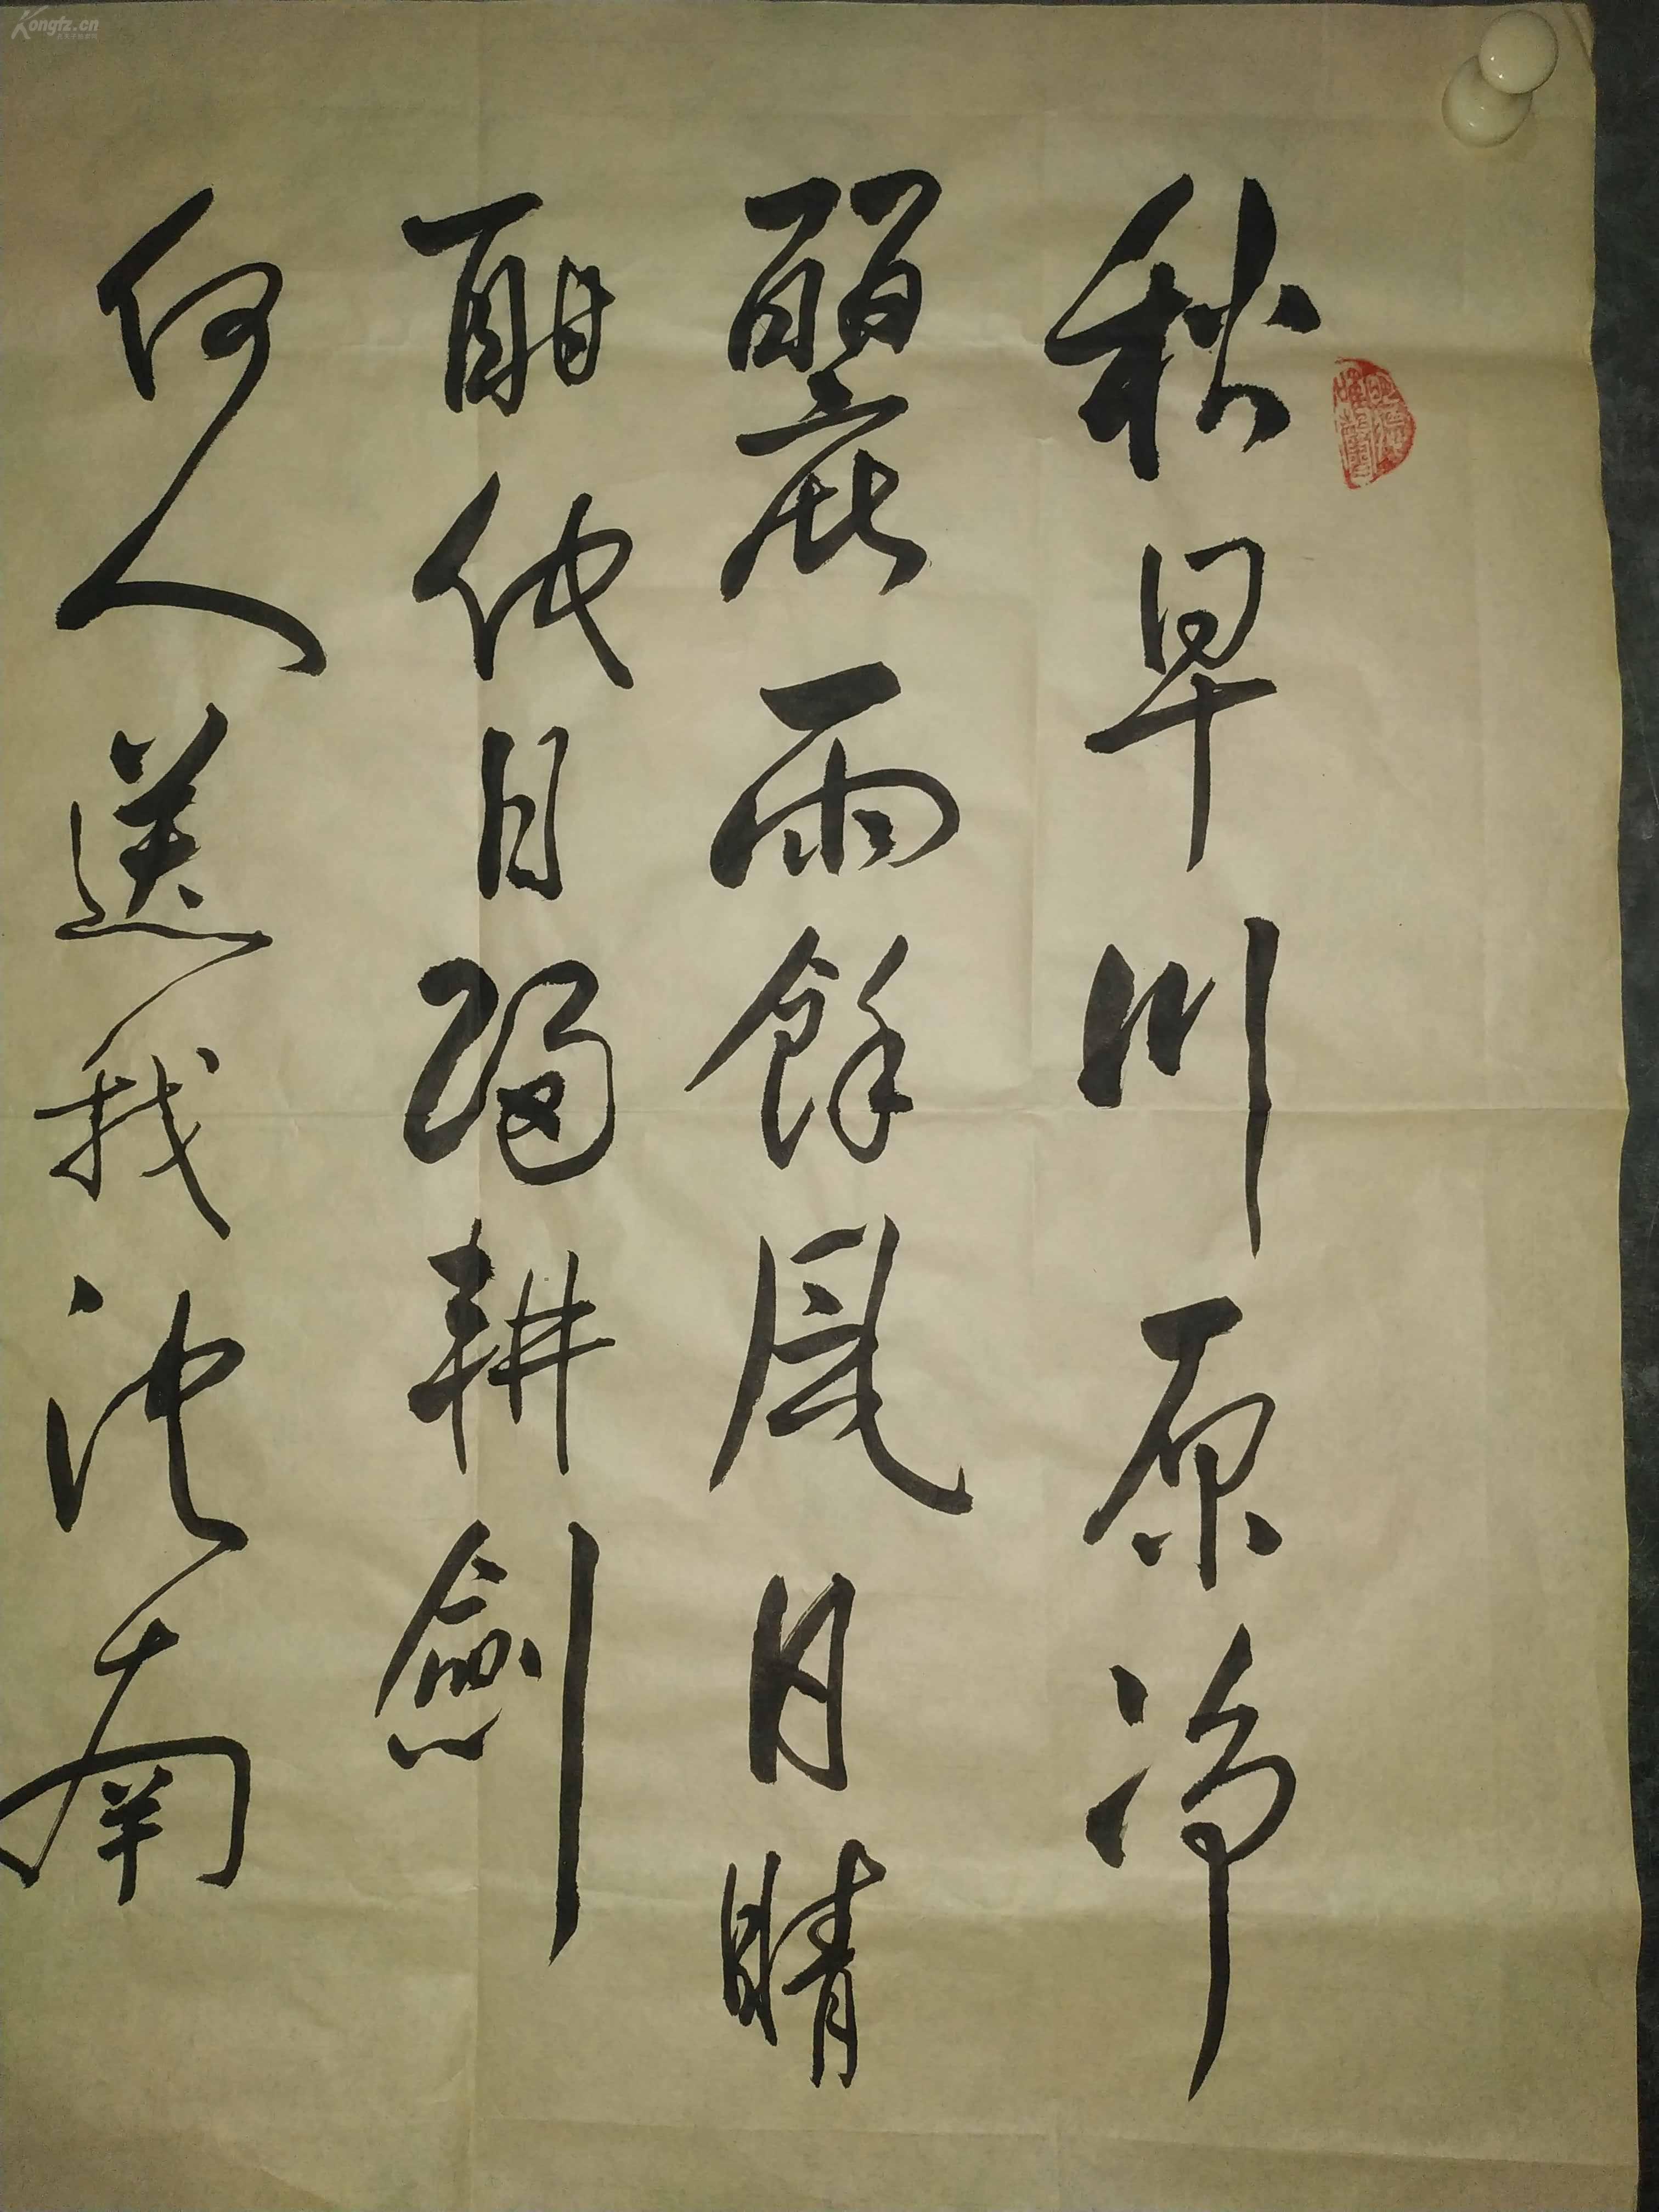 秋早川原净
麗雨餘風月晴
酣他日歸耕劍
何人送我池南
Kongfz.cn